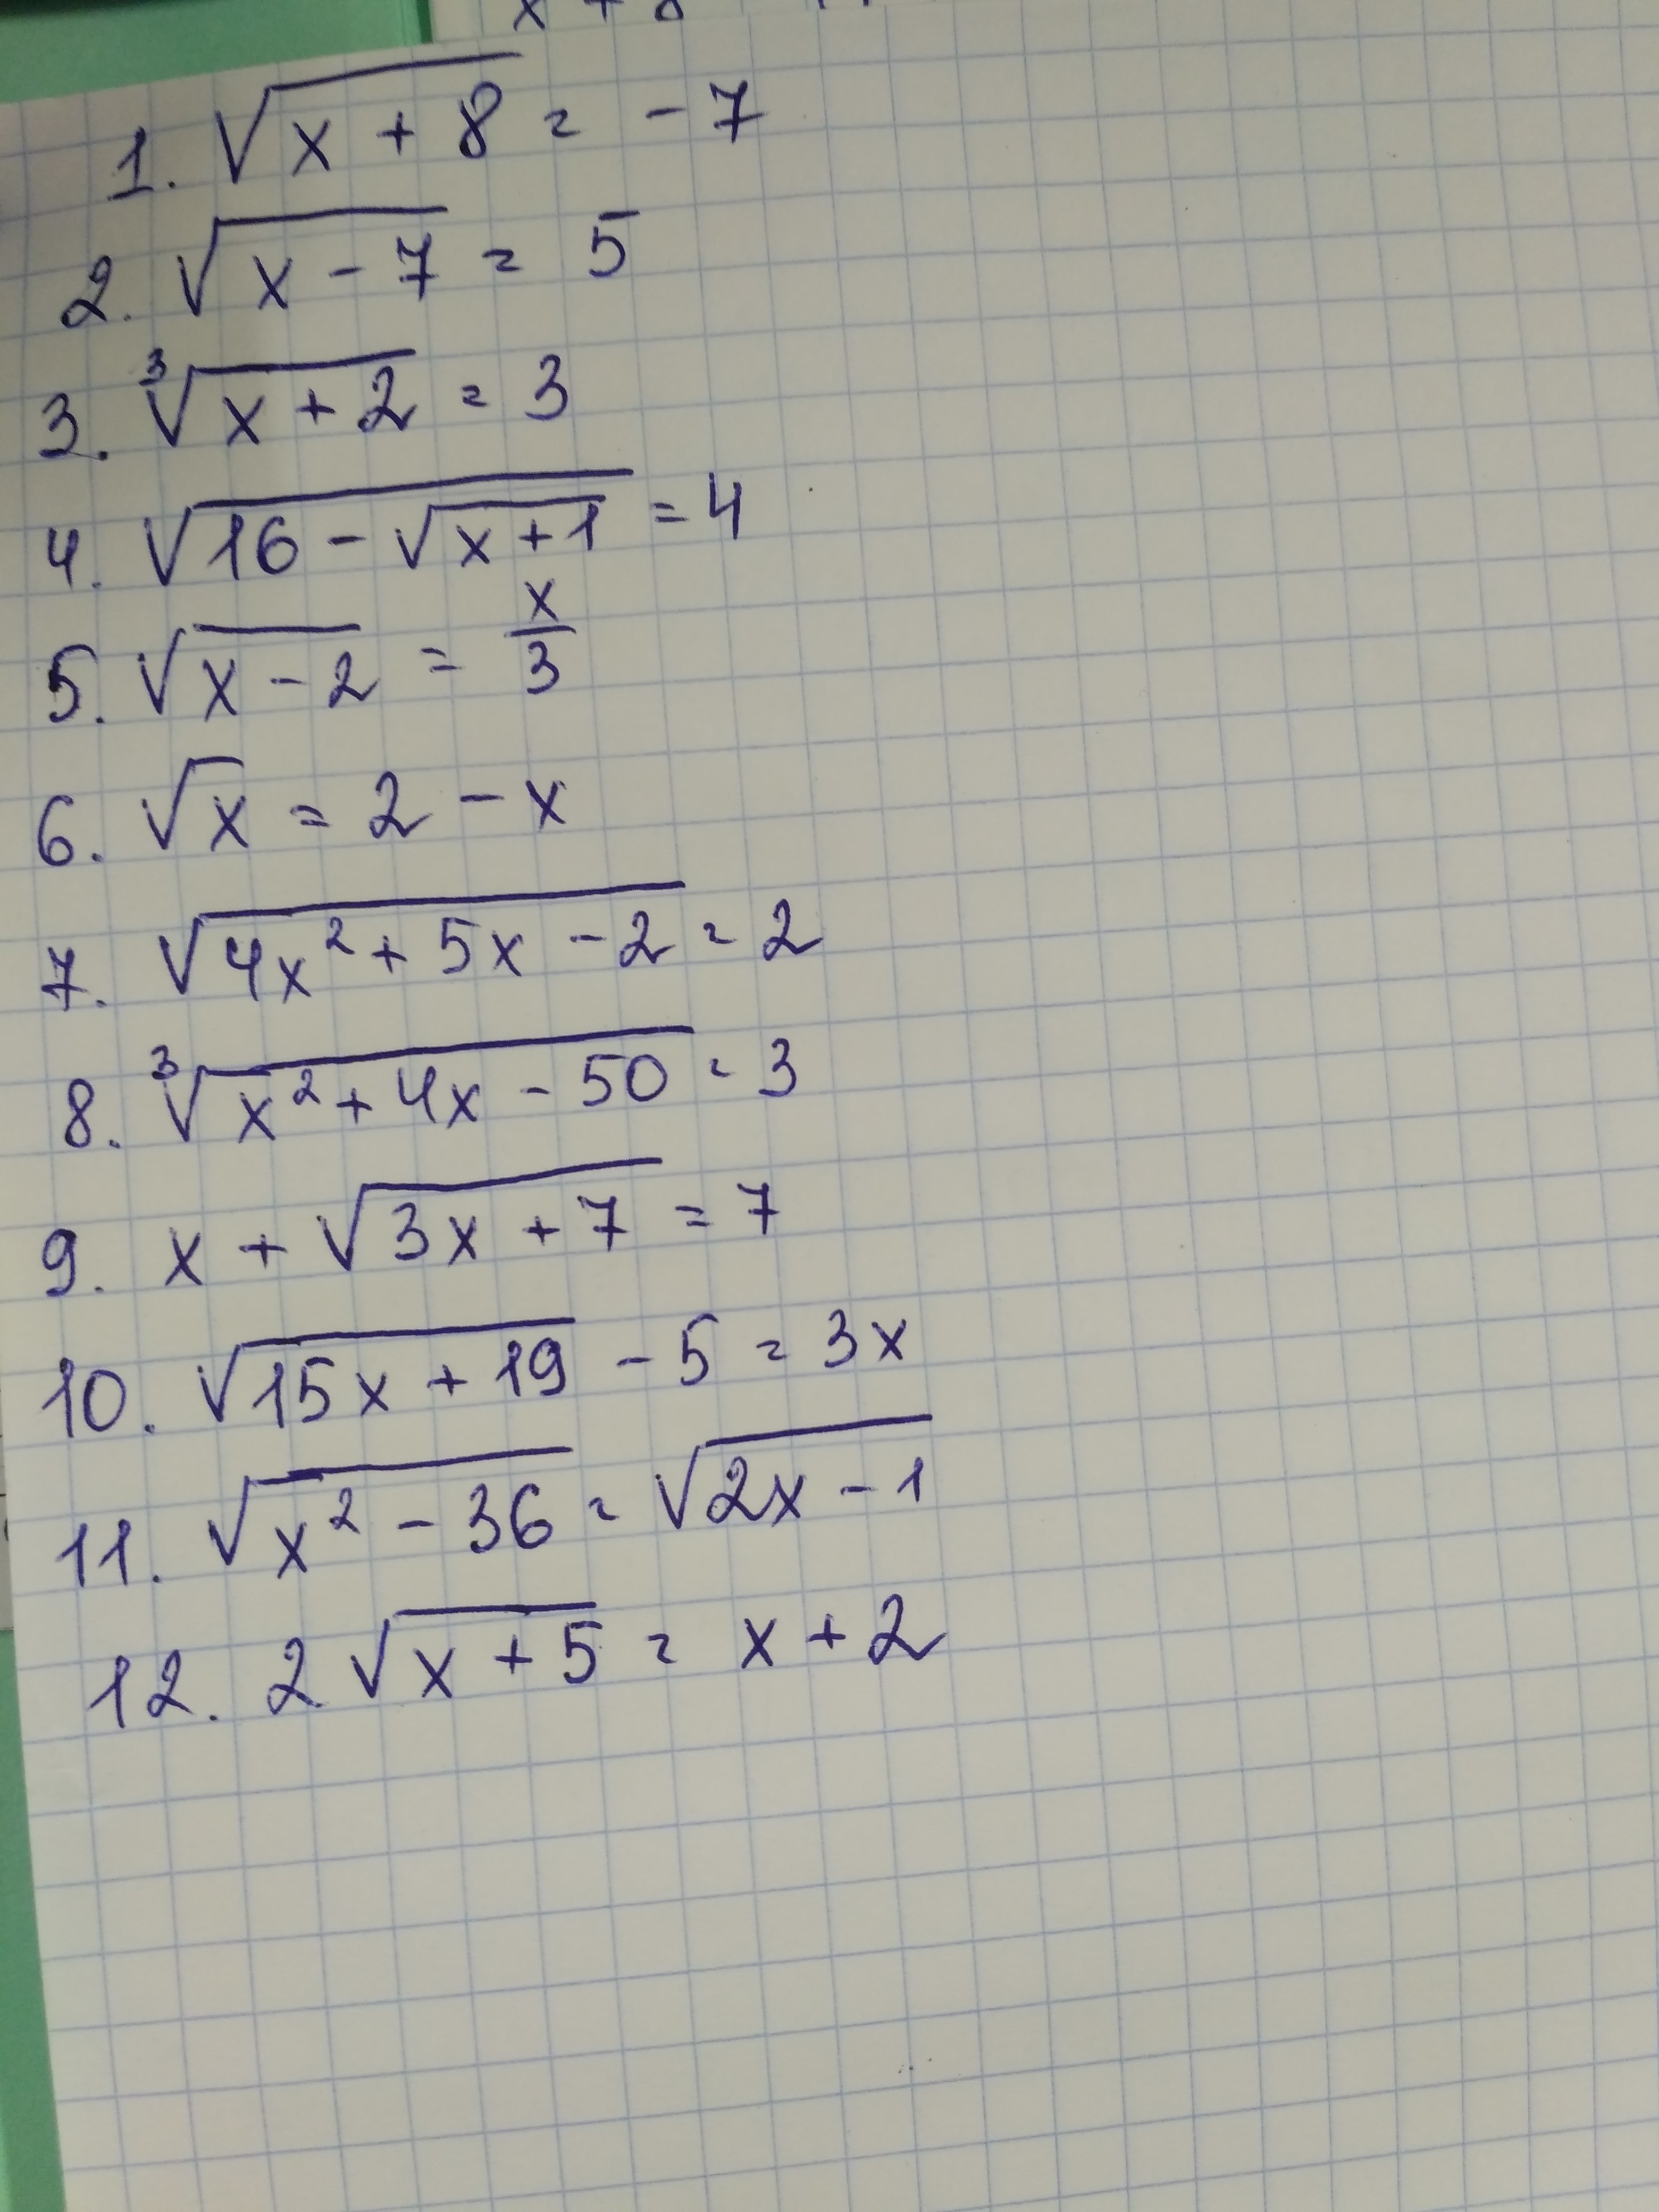 1. √(x + 8) = - 7
2. √(x - 7) = 5
3. ∛(x + 2) = 3
4. √(16 - √(x + 1)) = 4
5. √(x - 2) = x/3
6. √x = 2 - x
7. √(4x² + 5x - 2) = 2
8. ∛(x² + 4x - 50) = 3
9. x + √(3x + 7) = 7
10. √(15x + 19) - 5 = 3x
11. √(x² - 36) = √(2x - 1)
12. 2√(x + 5) = x + 2